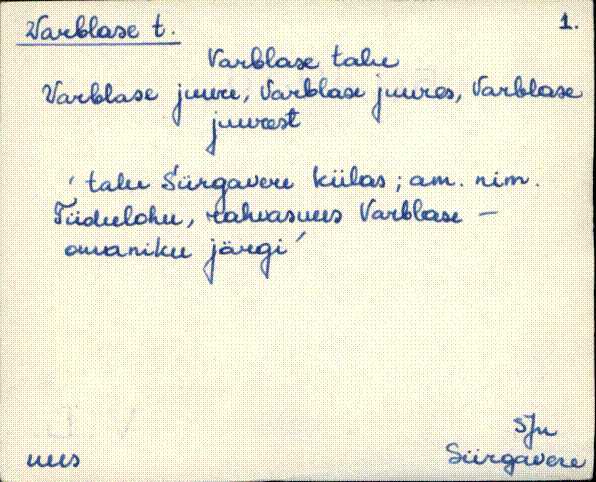 Varblase t.
1.
Varblase talu
Varblase juure, Varblase juures, Varblase
juurest
' talu Sürgavere külas; am. nim.
Tüdulohu, rahvasuus Varblase –
omaniku järgi '
SJn
uus
Sürgavere